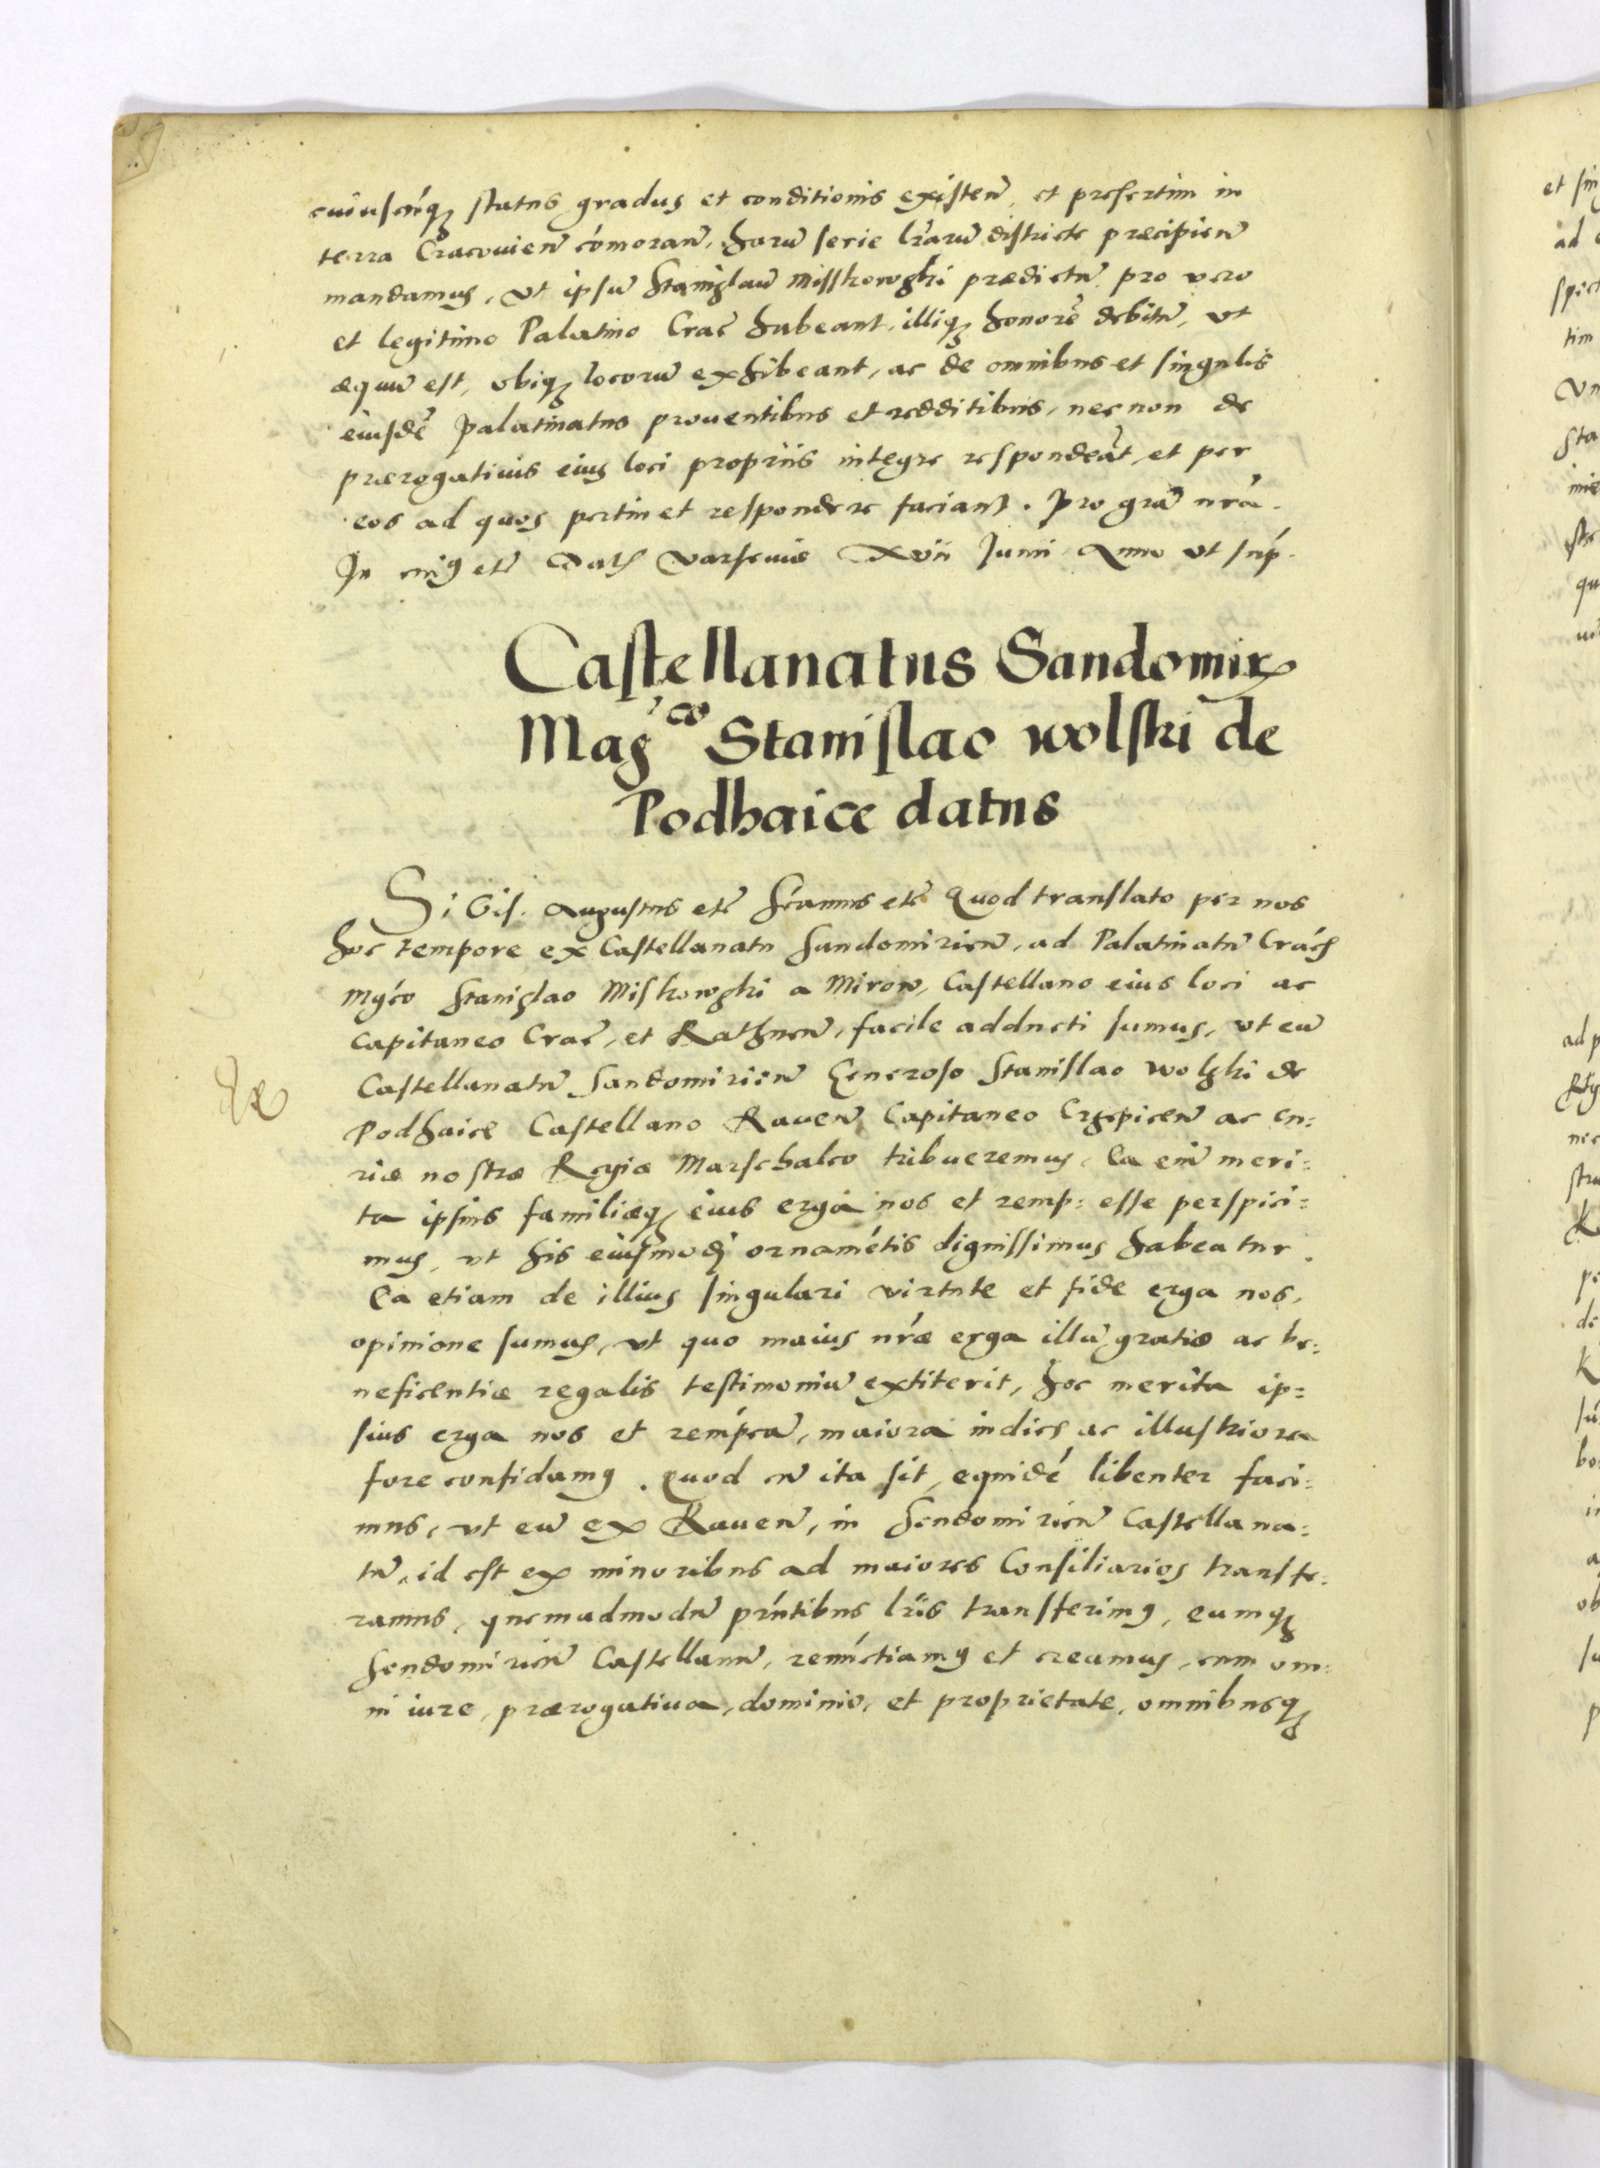 cuiuscúq; status gradus et conditionis existeñ, et presertim in
terra Cracovieñ cómorañ, harũ serie lrarũ districte præcipieñ
mandamus, vt ipsũ Stanislaũ Misshowski prædictũ pro vero
et legitimo Palatino Crac̃ habeant, illiq; honorẽ debitũ, vt
æquũ est, vbiq; locorũ exhibeant, ac de omnibus et singulis
eiusdẽ Palatinatus prouentibus et redditibus, nec non de
prærogatiuis eius loci proprijs integre respondeãt, et per
eos ad quos pertinet respondere faciant. Pro grã nrã.
In cuiꝰ etc̃ Dat̃ Varsauiæ Xvii Junii Anno vt suṕ.
Castellanatus Sandomir̃
Mag.co Stanislao wolski de
Podhaice datus
SiGis. Augustus etc̃ Scimus etc̃ Quod translato per nos
hoc tempore ex Castellanatu Sandomirieñ, ad Palatinatũ Crác̃
Mg̃co Stanislao Miskowski a Mirow, Castellano eius loci ac
Capitaneo Crac̃, et Rathneñ, facile adducti sumus, vt eũ
Castellanatũ Sandomirieñ Generoso Stanislao Wolski de
Podhaice Castellano Raueñ Capitaneo Crzepiceñ ac cu=
riæ nostræ Regiæ Marschalco tribueremus. Ea eñi meri=
ta ipsius familiæq; eius erga nos et remp: esse perspici=
mus, vt his eiusmodi ornamẽtis dignissimus habeatur.
Ea etiam de illius singulari virtute et fide erga nos,
opinione sumus, vt quo maius nræ erga illũ gratiæ ac be=
neficentiæ regalis testimoniũ extiterit, hoc merita ip=
sius erga nos et rempcã, maiora indies ac illustriora
fore confidamꝰ. Quod cũ ita sit, equidẽ libenter faci=
mus, vt eũ ex Raueñ, in Sendomirieñ Castellana=
tũ, id est ex minoribus ad maiores Consiliarios transfe=
ramus, quemadmodũ pñtibus lris transferimꝰ, eumq;
Sendomirieñ Castellanũ, renũctiamꝰ et creamus, cum om=
ni iure, prærogatiua, dominio, et proprietate, omnibusq;